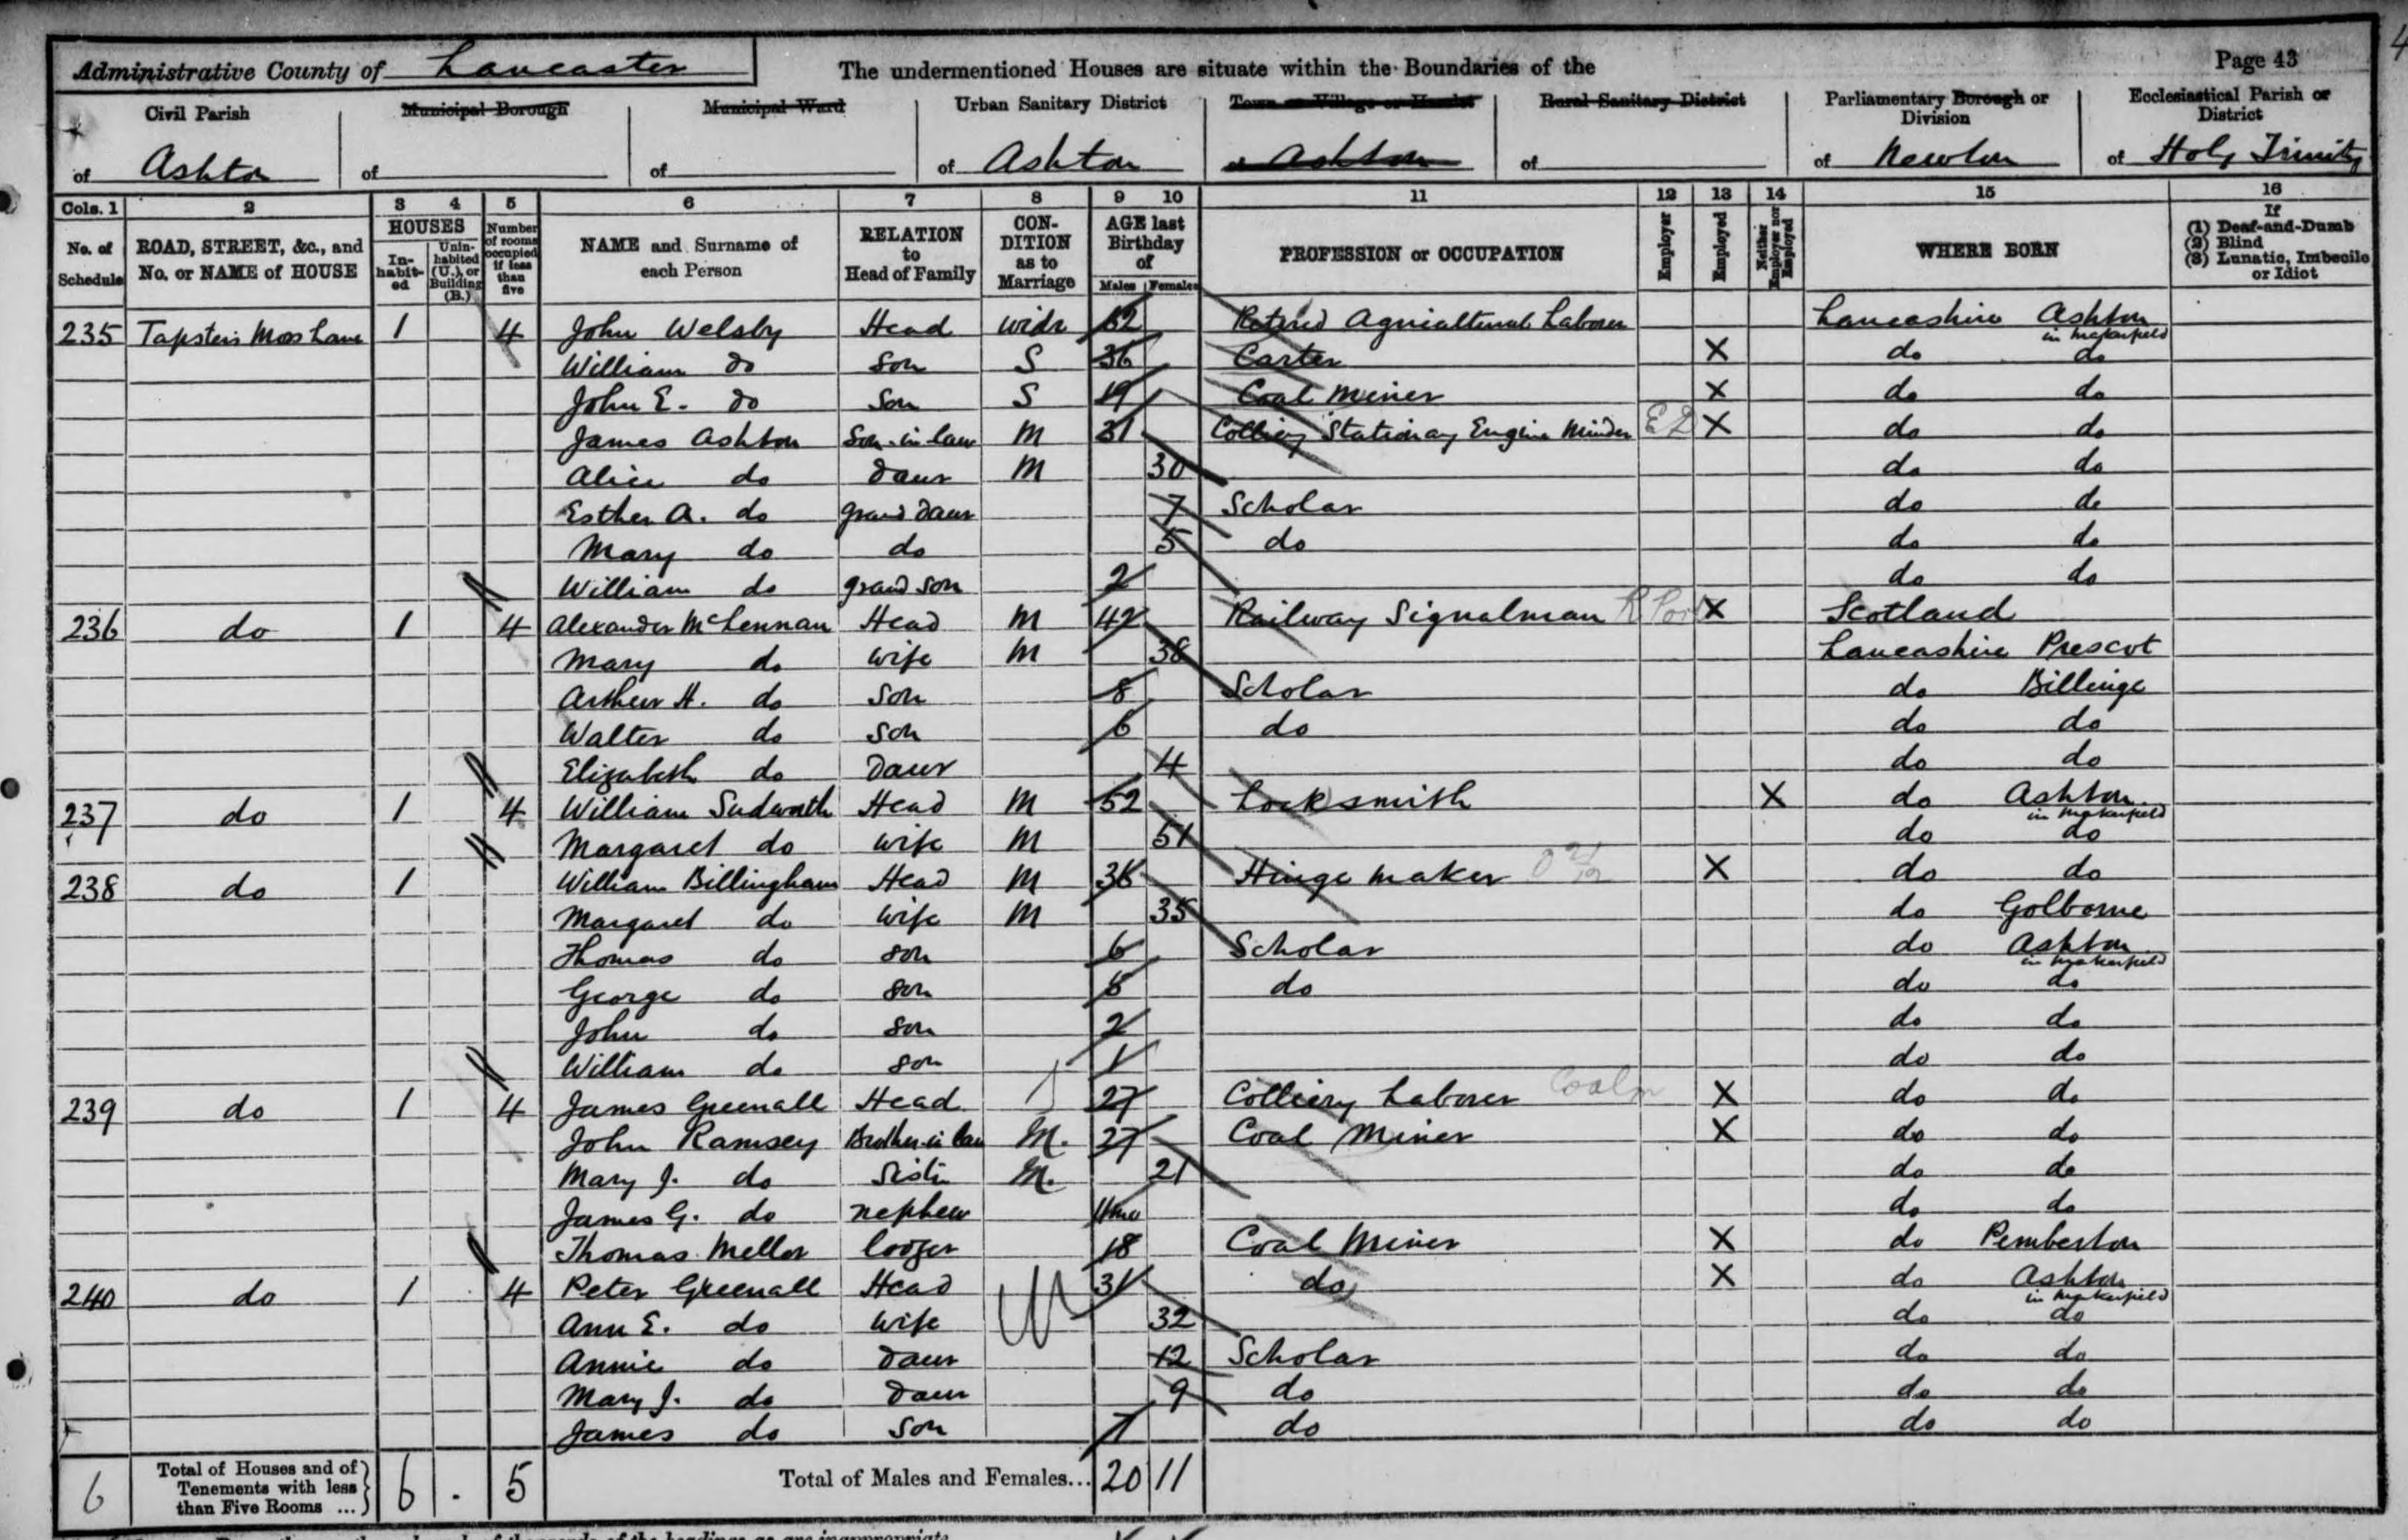 Administrative County of Lancaster The undermentioned Houses are situate within the Boundaries of the Page 43
Civil Parish Municipal Borough Municipal Ward Urban Sanitary District Town or Village or Hamlet Rural Sanitary District Parliamentary Borough or Division Ecclesiastical Parish or District
of Ashton of of of Ashton of Ashton of of Newton of Holy Trinity
Cols. 1 2 3 4 5 6 7 8 9 10 11 12 13 14 15 16
No. of Schedule ROAD, STREET, &c., and No. or NAME of HOUSE HOUSES Inhabited Uninhabited (U.), or Building (B.) Number of rooms occupied if less than five NAME and Surname of each Person RELATION to Head of Family CONDITION as to Marriage AGE last Birthday of Males Females PROFESSION or OCCUPATION Employer Employed Neither Employer nor Employed WHERE BORN If (1) Deaf-and-Dumb (2) Blind (3) Lunatic, Imbecile or Idiot
235 Tapsters Moss Lane 1 4 John Welsby Head widr 62 Retired Agricultural Laborer Lancashire Ashton in Makerfield
William do Son S 36 Carter X do do
John E. do Son S 19 Coal Miner X do do
James Ashton Son-in-law M 31 Colliery Stationary Engine Minder X do do
Alice do Daur M 30 do do
Esther A. do Grand Daur 7 Scholar do do
Mary do do 5 do do do
William do Grand Son 2 do do
236 do 1 4 Alexander McLennan Head M 42 Railway Signalman X Scotland
Mary do Wife M 38 Lancashire Prescot
Arthur H. do Son 8 Scholar do Billinge
Walter do Son 6 do do do
Elizabeth do Daur 4 do do
237 do 1 4 William Sudworth Head M 52 Locksmith X do Ashton in Makerfield
Margaret do Wife M 51 do do
238 do 1 William Billingham Head M 36 Hinge Maker X do do
Margaret do Wife M 35 do Golborne
Thomas do Son 6 Scholar do Ashton in Makerfield
George do Son 5 do do do
John do Son 2 do do
William do Son 1 do do
239 do 1 4 James Greenall Head 27 Colliery Laborer X do do
John Ramsey Brother-in-law M. 27 Coal Miner X do do
Mary J. do Sister M. 21 do do
James G. do nephew do do
Thomas Mellor lodger 18 Coal Miner X do Pemberton
240 do 1 4 Peter Greenall Head 31 do X do Ashton in Makerfield
Ann E. do Wife 32 do do
Annie do Daur 12 Scholar do do
Mary J. do Daur 9 do do do
James do Son 7 do do do
6 Total of Houses and of Tenements with less than Five Rooms ... 6 . 5 Total of Males and Females... 20 11